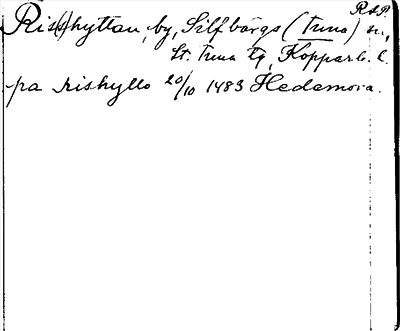 R.A.P.
Ris(s)hyttan, by, Silfbärgs (Tuna) sn,
St. Tuna tg, Kopparb. l.
pa rishyllo 20/10 1483 Hedemora.